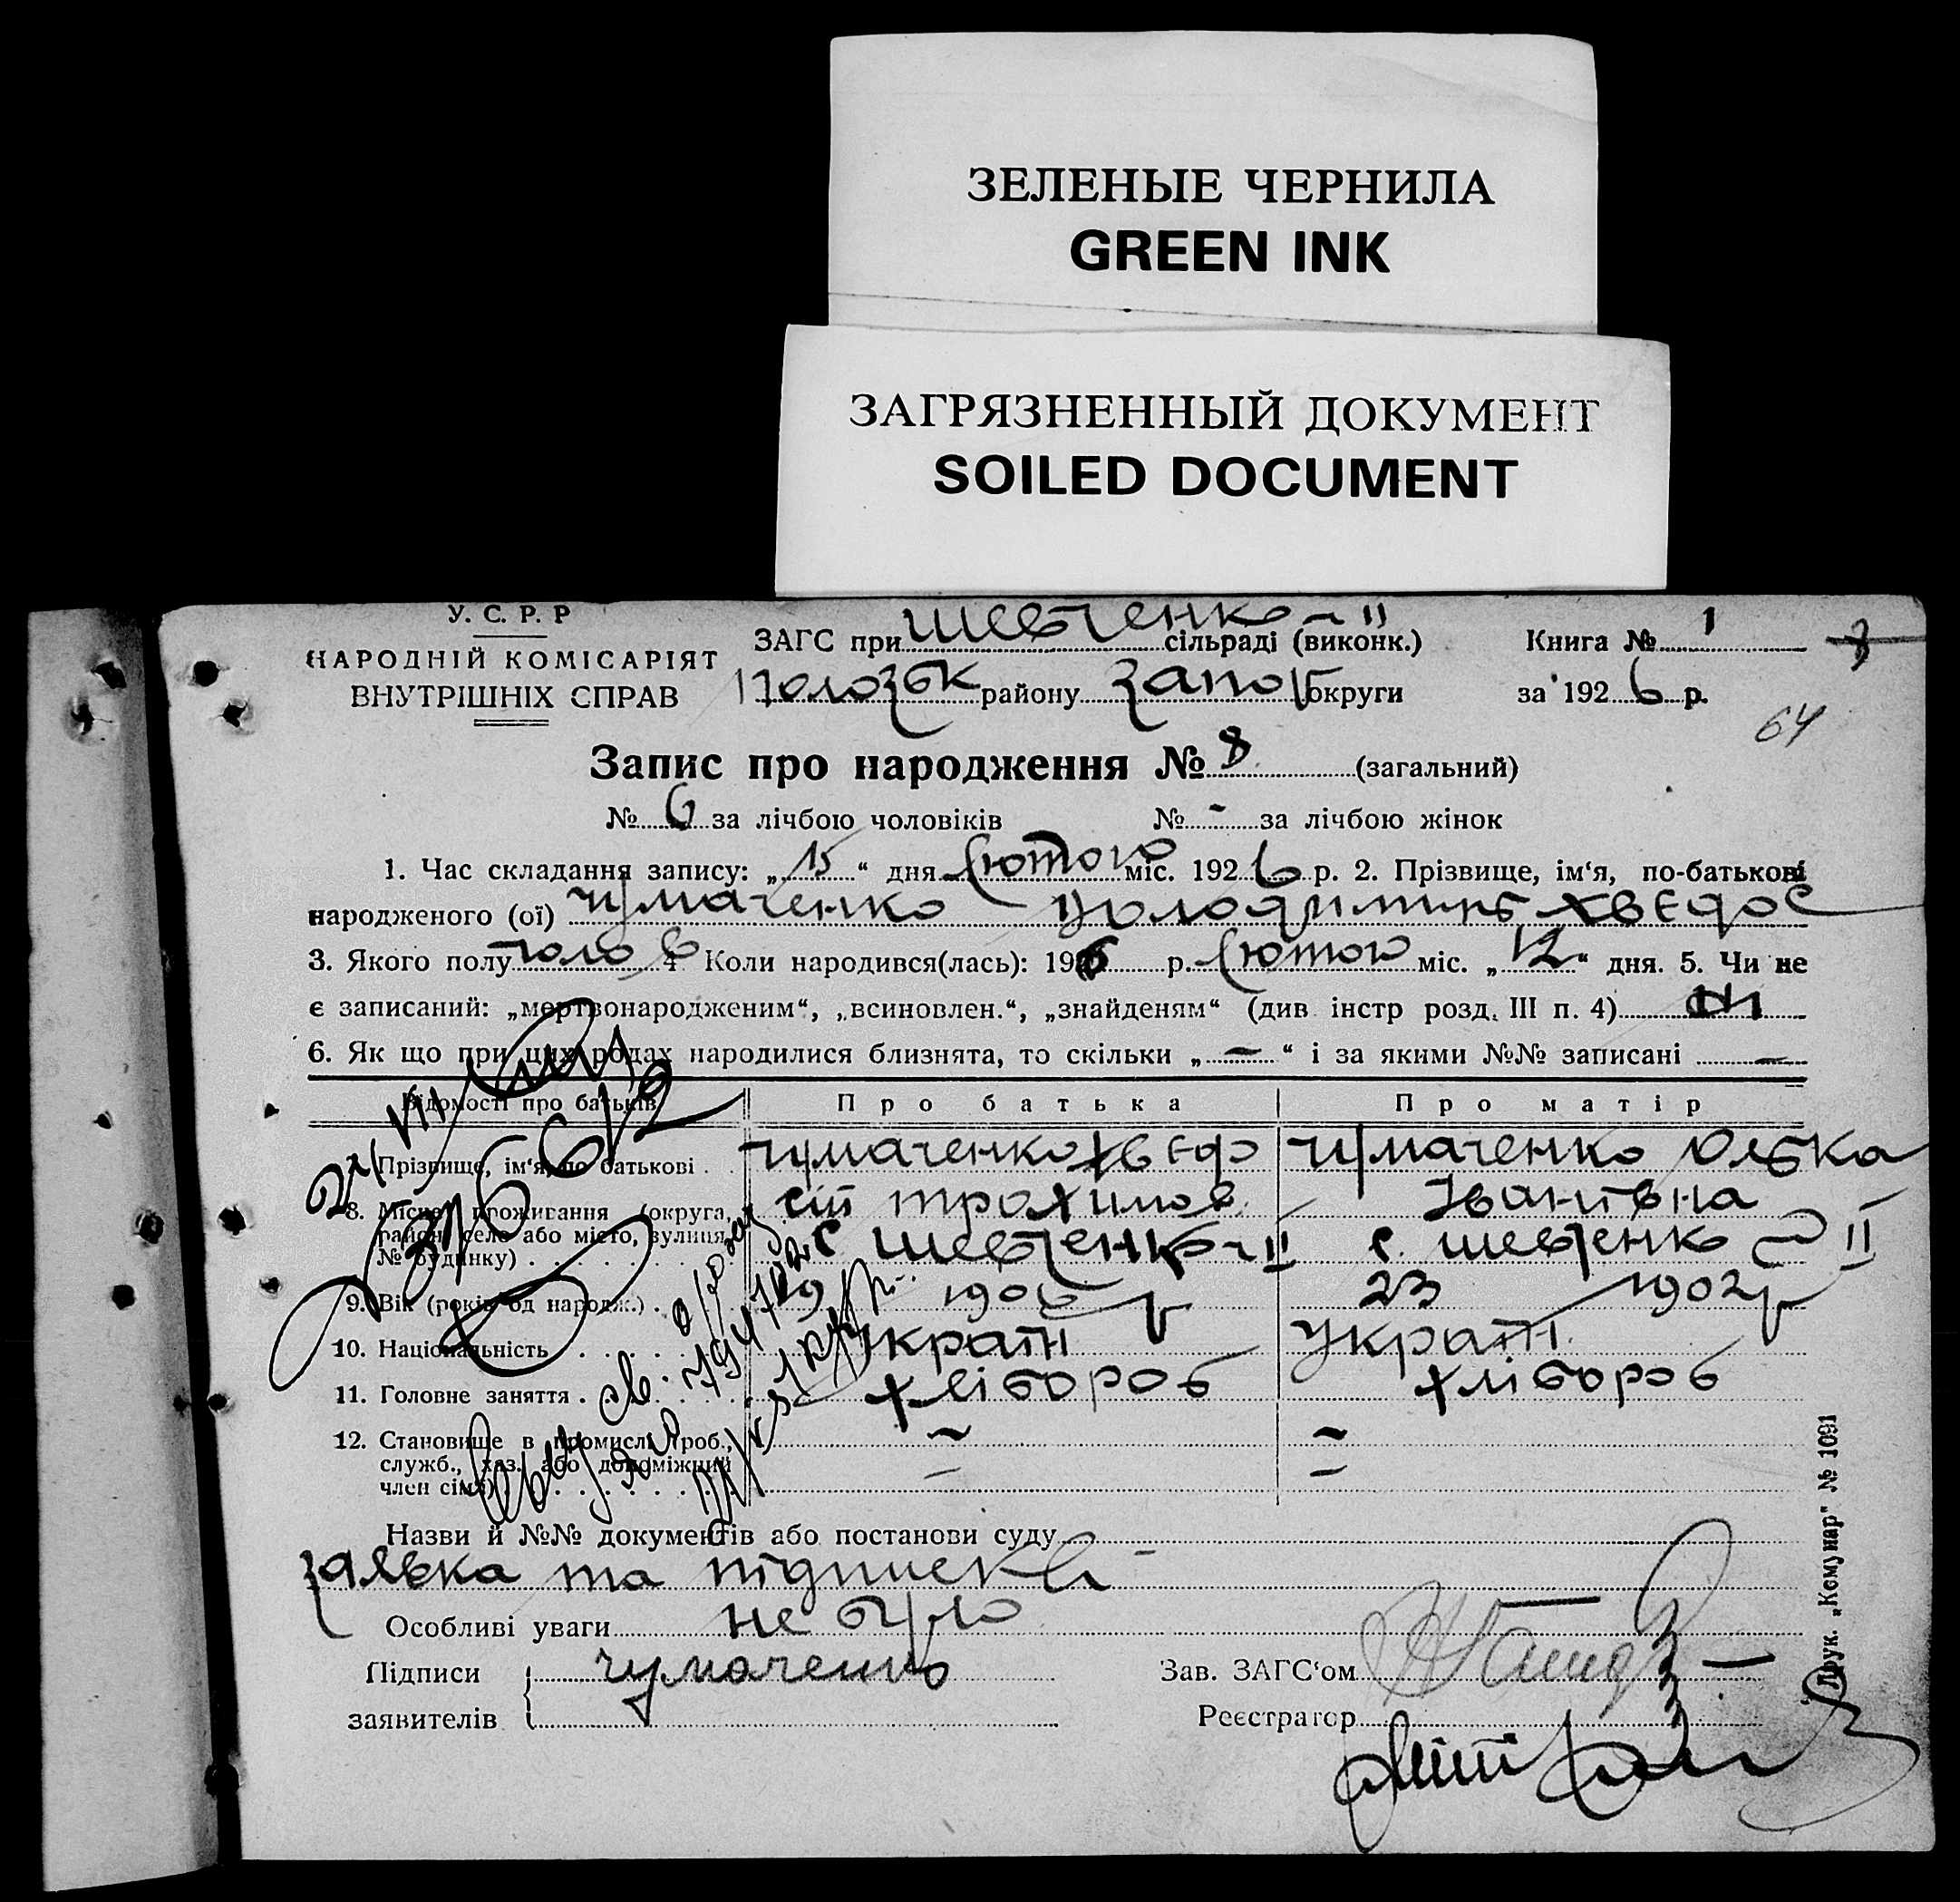 ЗЕЛЕНЫЕ ЧЕРНИЛА
GREEN INK
ЗАГРЯЗНЕННЫЙ ДОКУМЕНТ
SOILED DOCUMENT
У. С. Р. Р
НАРОДНІЙ КОМІСАРІЯТ
ВНУТРІШНІХ СПРАВ
ЗАГС при Шевченко - II сільраді (виконк.) Книга № 1
Полозьк району Запор округи за 1926 р.
64
Запис про народження № 8 (загальний)
№ 6 за лічбою чоловіків № - за лічбою жінок
1. Час складання запису: „15“ дня Лютого міс. 1926 р. 2. Прізвище, ім‘я, по-батькові
народженого (ої) Чумаченко Володимирь Хвєдос
3. Якого полу чолов 4 Коли народився(лась): 1926 р. Лютого міс. „12“ дня. 5. Чи не
є записаний: „мертвонародженим“, „всиновлен.“, „знайденям“ (див інстр розд. III п. 4) ні
6. Як що при цих родах народилися близнята, то скільки „-“ і за якими №№ записані -
Відомості про батьків Про батька Про матір
Прізвище, ім‘я, по батькові . . Чумаченко Хвєдо Чумаченко Олька
сій Трохимов Іванівна
8. Місце проживання (округа, район, село або місто, вулиця, № будинку) . . . с Шевченко - II с. Шевченко - II
9. Вік (років од народж.) . 19 1906 р 23 1902 р
10. Національність . . . . . Україн Україн.
11. Головне заняття . . . . хлібороб хлібороб
12. Становище в промислі (роб., - -
служб., хаз. або допоміжний - -
член сім‘ї)
Назви й №№ документів або постанови суду
заявка та підписка
Особливі уваги не було
Підписи Чумаченко Зав. ЗАГС‘ом
заявителів Реєстратор
Друк. „Комунар“ № 1091